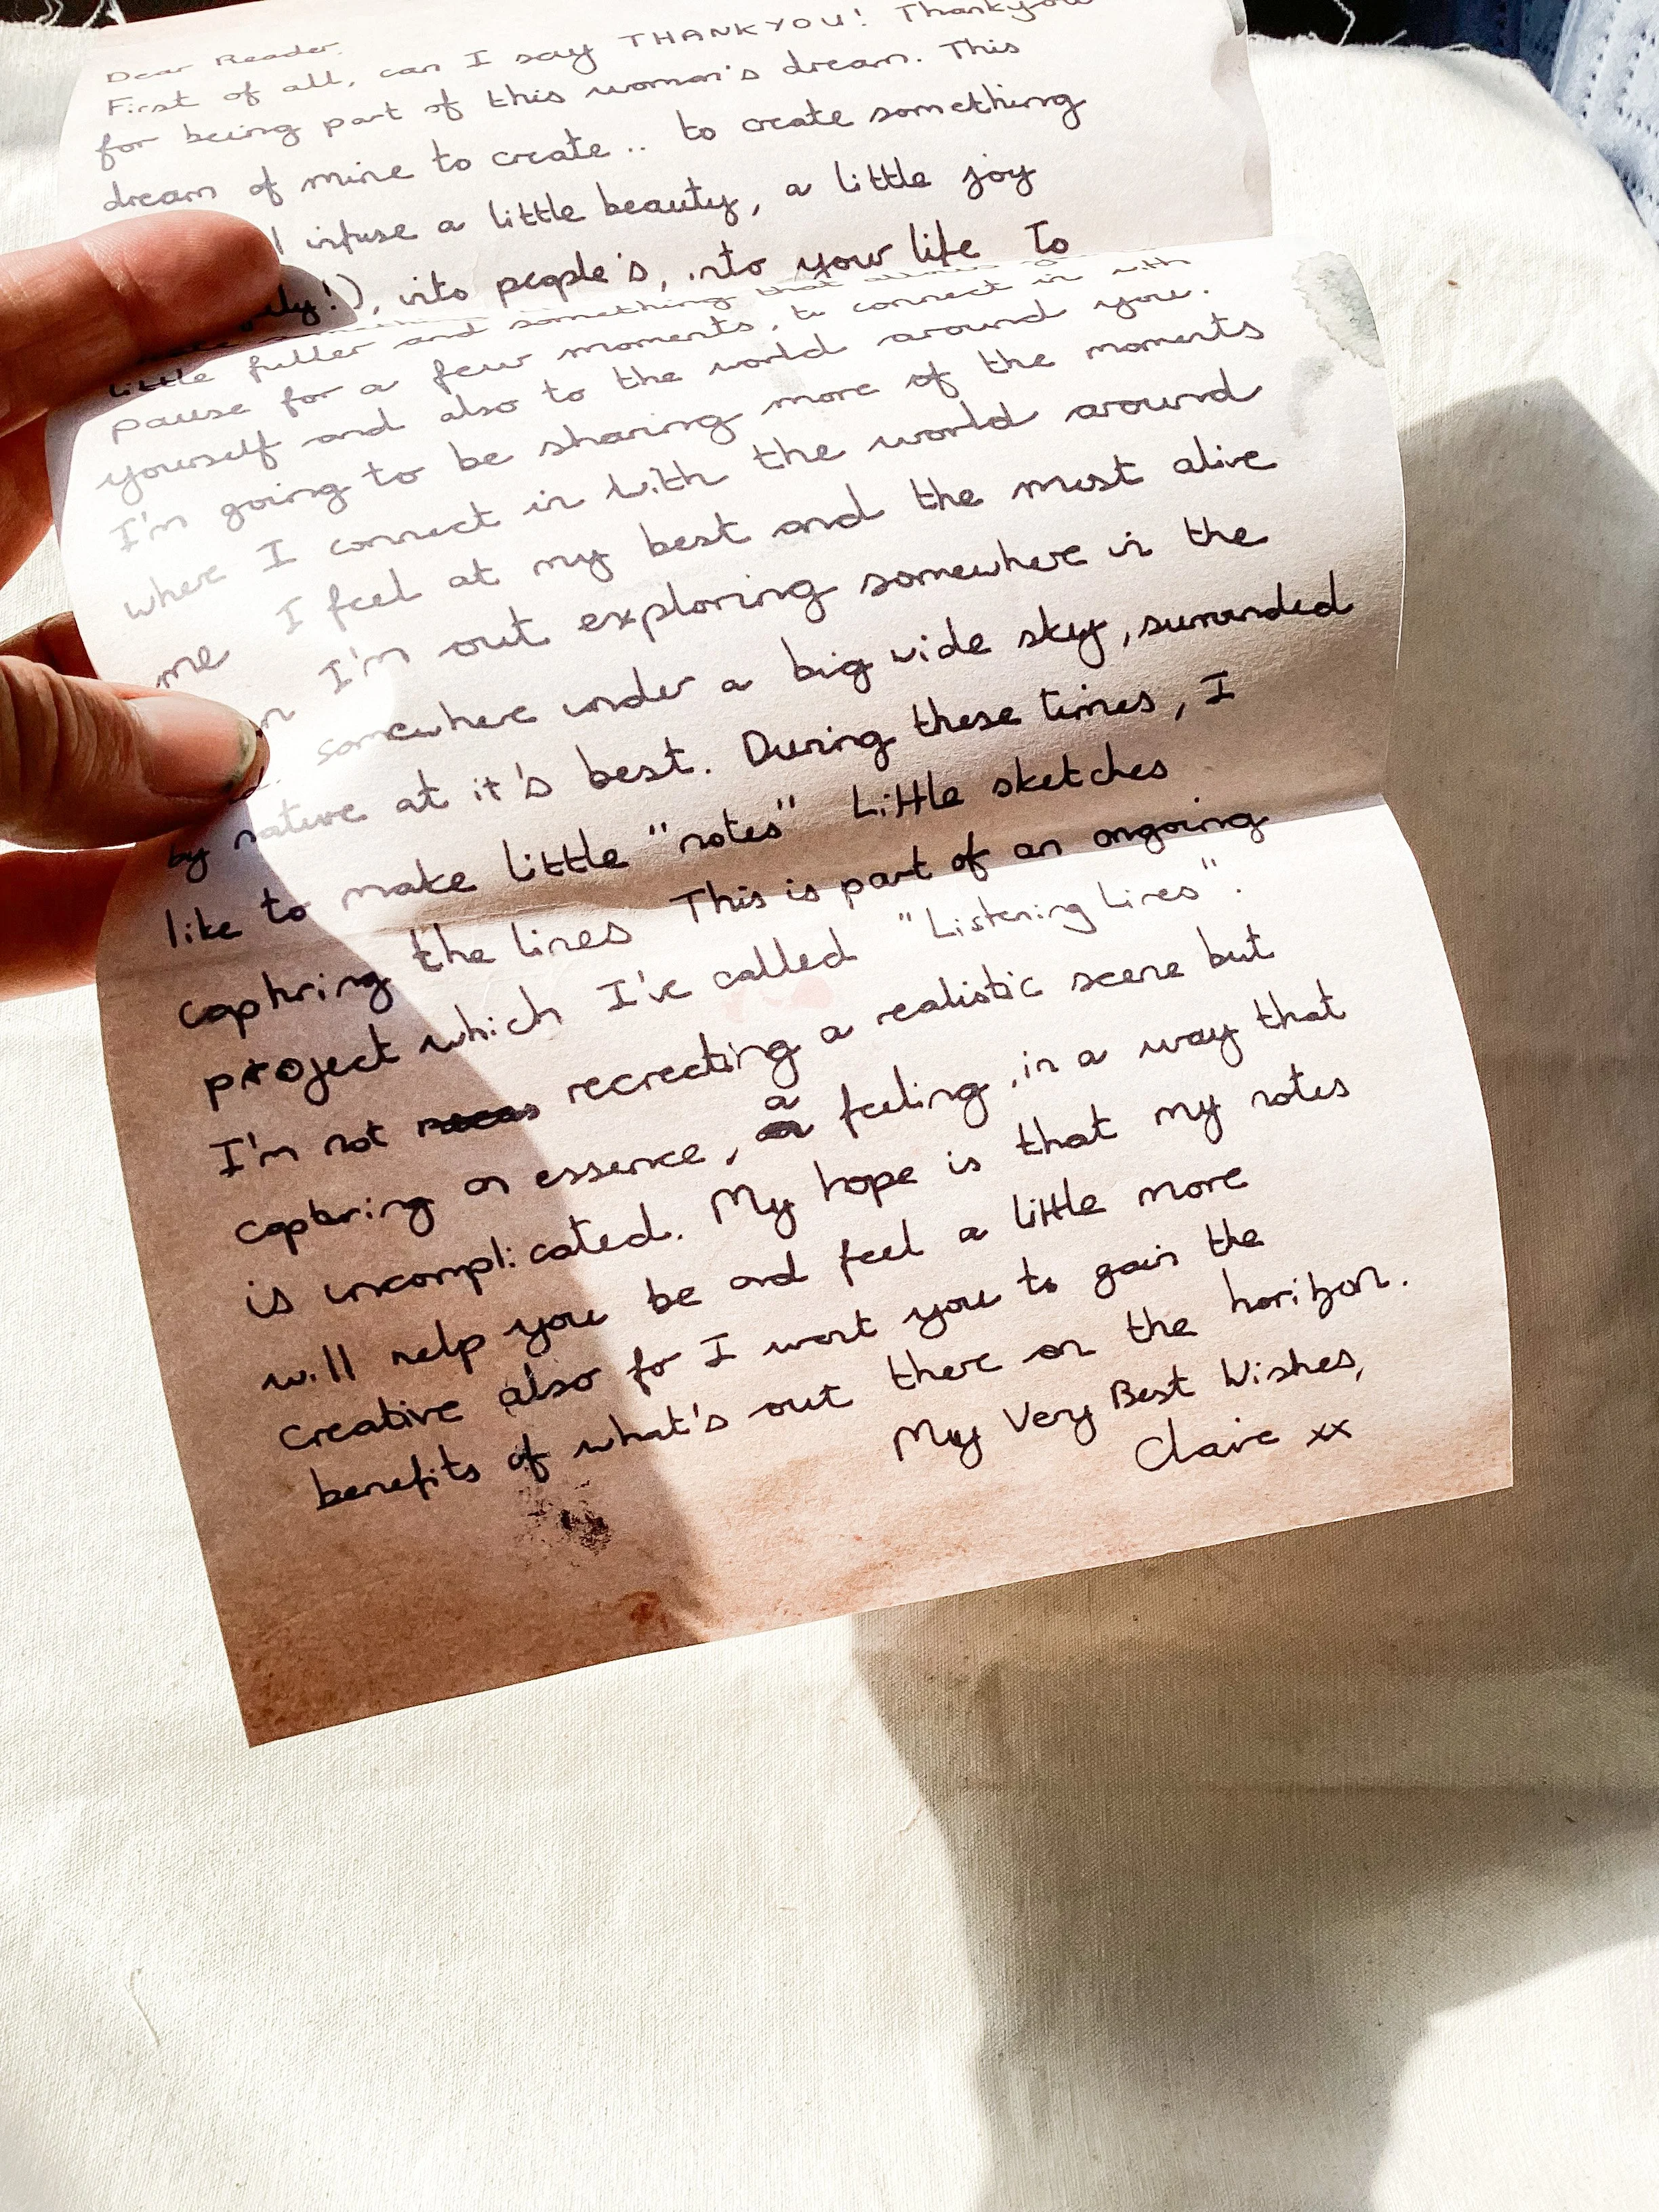 Dear Reader.
First of all, can I say THANKYOU! Thankyou
for being part of this woman's dream. This
dream of mine to create.. to create something
infuse a little beauty, a little joy
!), into people's, into your life To
something that
little fuller and
pause for a few moments, to connect in with
yourself and also to the world around you.
I'm going to be sharing more of the moments
where I connect in with the world around
me I feel at my best and the most alive
I'm out exploring somewhere in the
somewhere under a big wide sky, surrounded
by nature at it's best. During these times, I
like to make little "notes" Little sketches
capturing the lines This is part of an ongoing
project which I've called "Listening Lines".
I'm not recreating a realistic scene but
capturing an essence, a feeling, in a way that
is uncomplicated. My hope is that my notes
will help you be and feel a little more
creative also for I want you to gain the
benefits of what's out there on the horizon.
My Very Best Wishes,
Claire xx